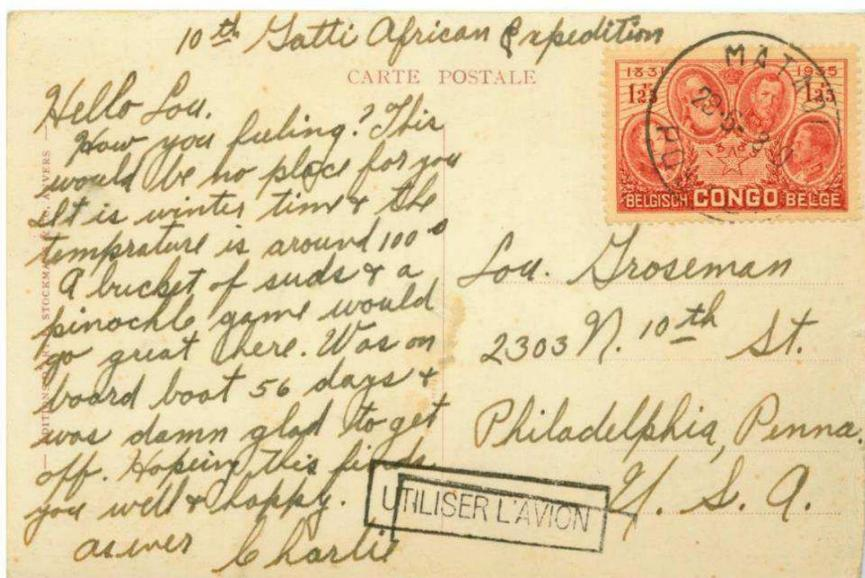 10th Gatti African Expedition
CARTE POSTALE
Hello Lou.
How you feeling? This
would be no place for you
It is winter time & the
temprature is around 100°
A bucket of suds & a
pinochle game would
go great here. Was on
board boat 56 days &
was damn glad to get
off. Hopeing this finds
you well & happy.
as ever Charlie
1885 1935
1.25 1.25
MATADI
BELGISCH CONGO BELGE
Lou. Groseman
2303 N. 10th St.
Philadelphia, Penna.
U. S. A.
UTILISER L'AVION
STOCKMANS ANVERS